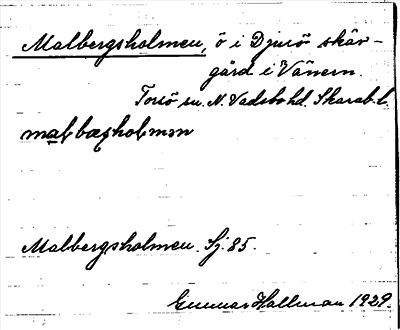 Malbergsholmen, ö i Djurö skär-
gård i Vänern.
Torsö sn. N. Vadsbo hd. Skarab. l.
malbæsholmən
Malbergsholmen. Sj. 85.
Gunnar Hallman 1929.